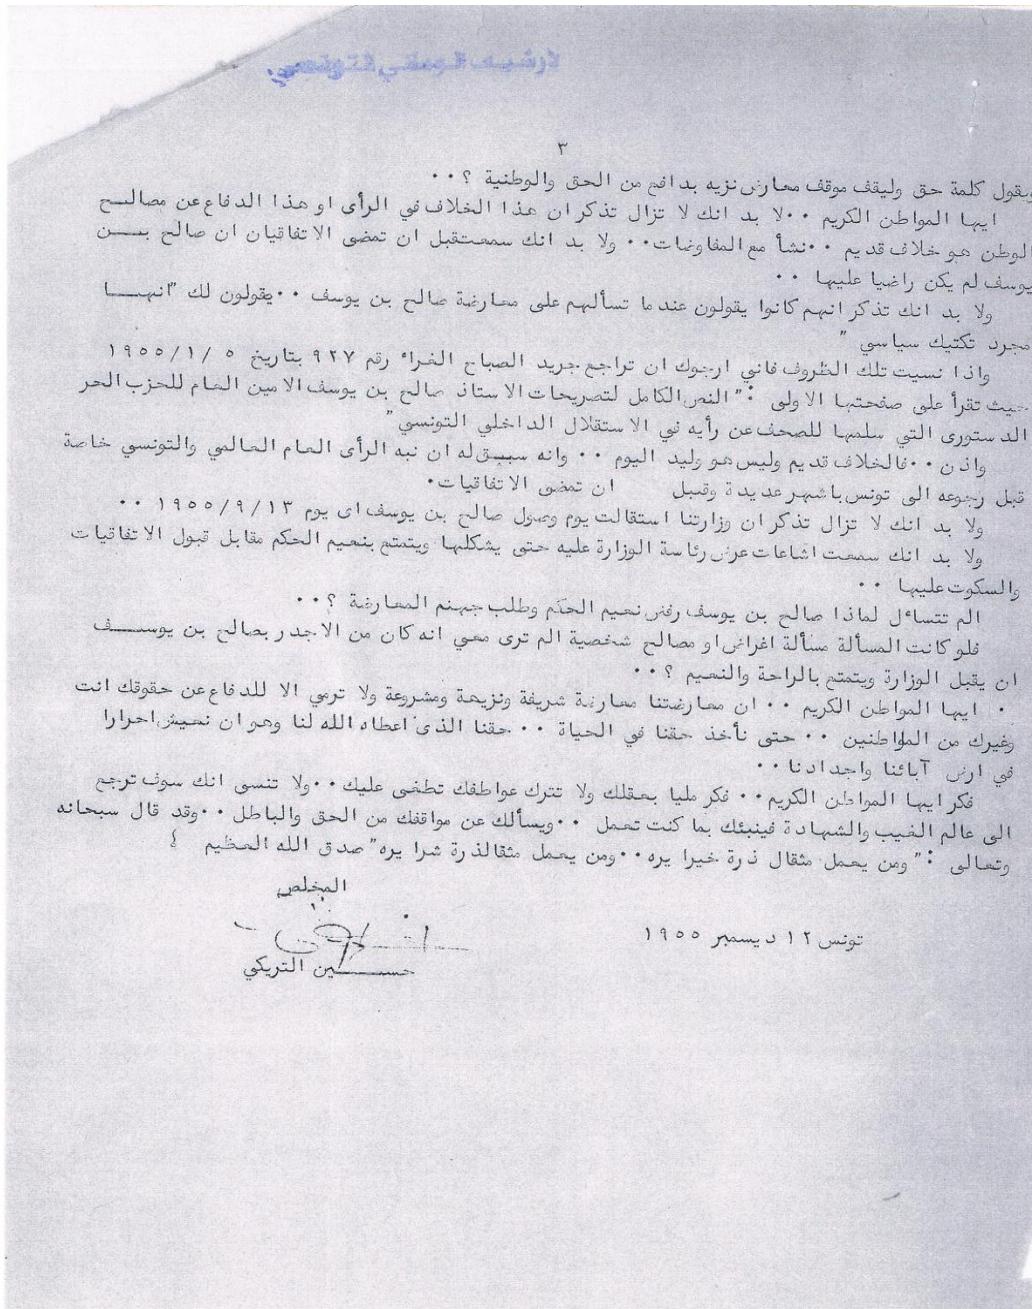 الأرشيف الوطني التونسي
٣
يقول كلمة حق وليقف موقف معارض نزيه بدافع من الحق والوطنية ؟٠٠
ايها المواطن الكريم ٠٠لا بد انك لا تزال تذكر ان هذا الخلاف في الرأى او هذا الدفاع عن مصالح
الوطن هو خلاف قديم ٠٠نشأ مع المفاوضات٠٠ ولا بد انك سمعت قبل ان تمضى الاتفاقيان ان صالح بن
يوسف لم يكن راضيا عليها ٠٠
ولا بد انك تذكر انهم كانوا يقولون عندما تسألهم على معارضة صالح بن يوسف ٠٠يقولون لك "انها
مجرد تكتيك سياسي "
واذا نسيت تلك الظروف فاني ارجوك ان تراجع جريد الصباح الغراء رقم ٩٢٧ بتاريخ ٥ /١/١٩٥٥
حيث تقرأ على صفحتها الاولى :" النص الكامل لتصريحات الاستاذ صالح بن يوسف الامين العام للحزب الحر
الدستورى التي سلمها للصحف عن رأيه في الاستقلال الداخلي التونسي"
واذن ٠٠فالخلاف قديم وليس هو وليد اليوم ٠٠ وانه سبق له ان نبه الرأى العام العالمي والتونسي خاصة
قبل رجوعه الى تونس باشهر عديدة وقبل ان تمضى الاتفاقيات٠
ولا بد انك لا تزال تذكر ان وزارتنا استقالت يوم وصول صالح بن يوسف اى يوم ١٩٥٥/٩/١٣ ٠٠
ولا بد انك سمعت اشاعات عرض رئاسة الوزارة عليه حتى يشكلها ويتمتع بنعيم الحكم مقابل قبول الاتفاقيات
والسكوت عليها ٠٠
الم تتساءل لماذا صالح بن يوسف رفض نعيم الحكم وطلب جهنم المعارضة ؟٠٠
فلو كانت المسألة مسألة اغراض او مصالح شخصية الم ترى معي انه كان من الاجدر بصالح بن يوسف
ان يقبل الوزارة ويتمتع بالراحة والنعيم ؟٠٠
٠ ايها المواطن الكريم ٠٠ ان معارضتنا معارضة شريفة ونزيهة ومشروعة ولا ترمي الا للدفاع عن حقوقك انت
وغيرك من المواطنين ٠٠ حتى نأخذ حقنا في الحياة ٠٠حقنا الذى اعطاه الله لنا وهو ان نعيش احرارا
في ارض آبائنا واجدادنا٠٠
فكر ايها المواطن الكريم٠٠ فكر مليا بعقلك ولا تترك عواطفك تطغى عليك٠٠ولا تنسى انك سوف ترجع
الى عالم الغيب والشهادة فينبئك بما كنت تعمل ٠٠ويسألك عن مواقفك من الحق والباطل ٠٠وقد قال سبحانه
وتعالى :" ومن يعمل مثقال ذرة خيرا يره٠٠ومن يعمل مثقالذرة شرا يره" صدق الله العظيم
المخلص
تونس ١٢ ديسمبر ١٩٥٥
حسين التريكي